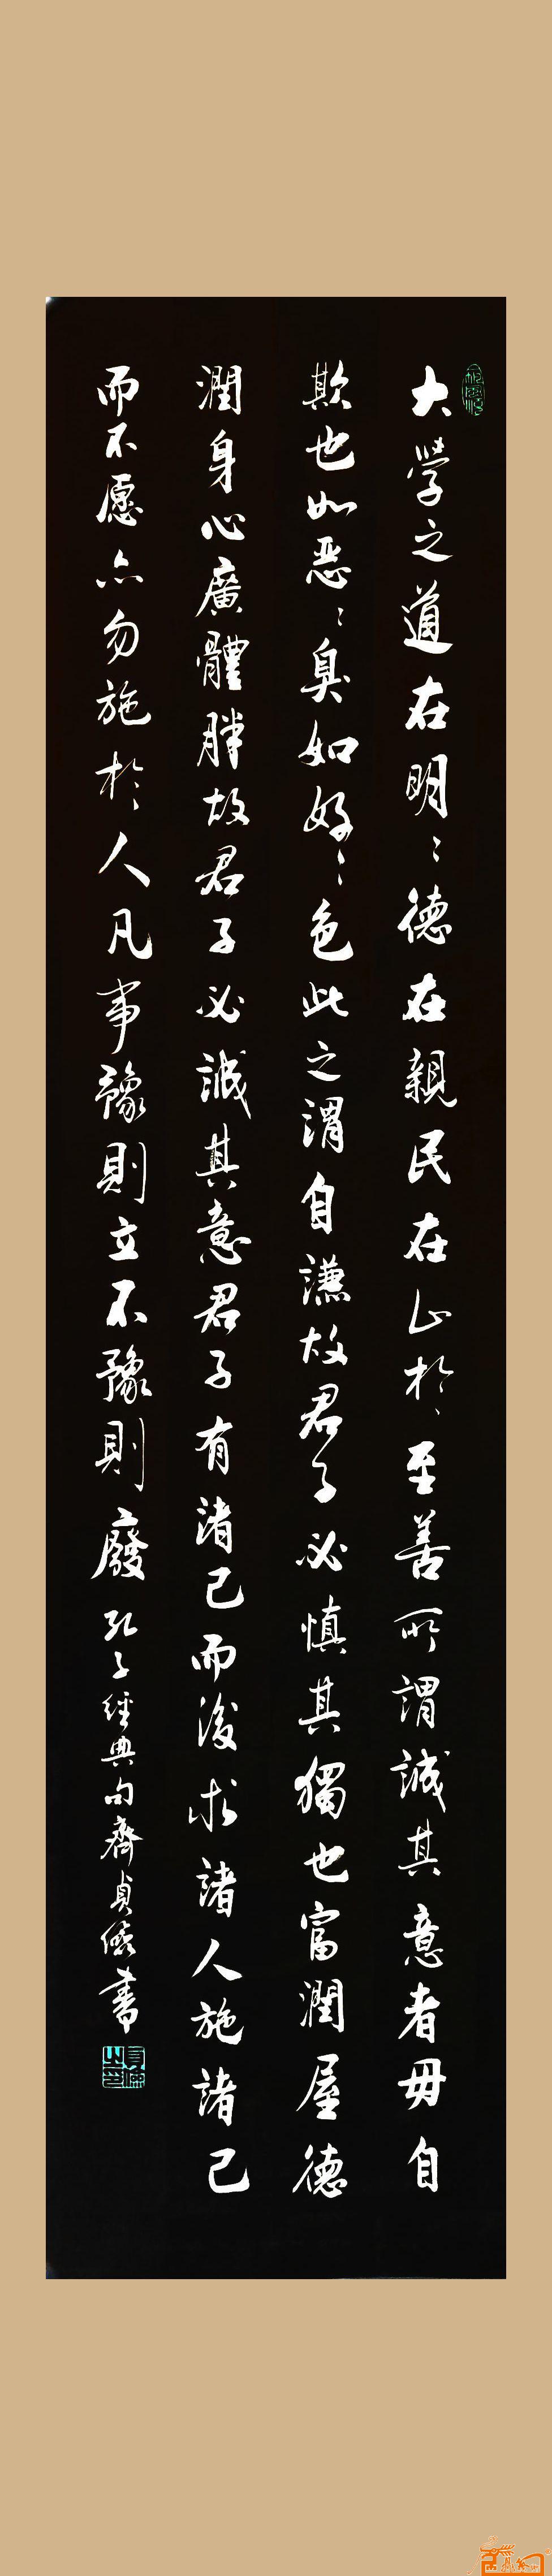 大學之道在明〻德在親民在止於至善所謂誠其意者毋自
欺也如恶〻臭如好〻色此之謂自謙故君子必慎其獨也富潤屋德
潤身心廣體胖故君子必誠其意君子有诸己而後求諸人施諸己
而不愿亦勿施於人凡事豫則立不豫則廢
孔子經典句齊貞儒書